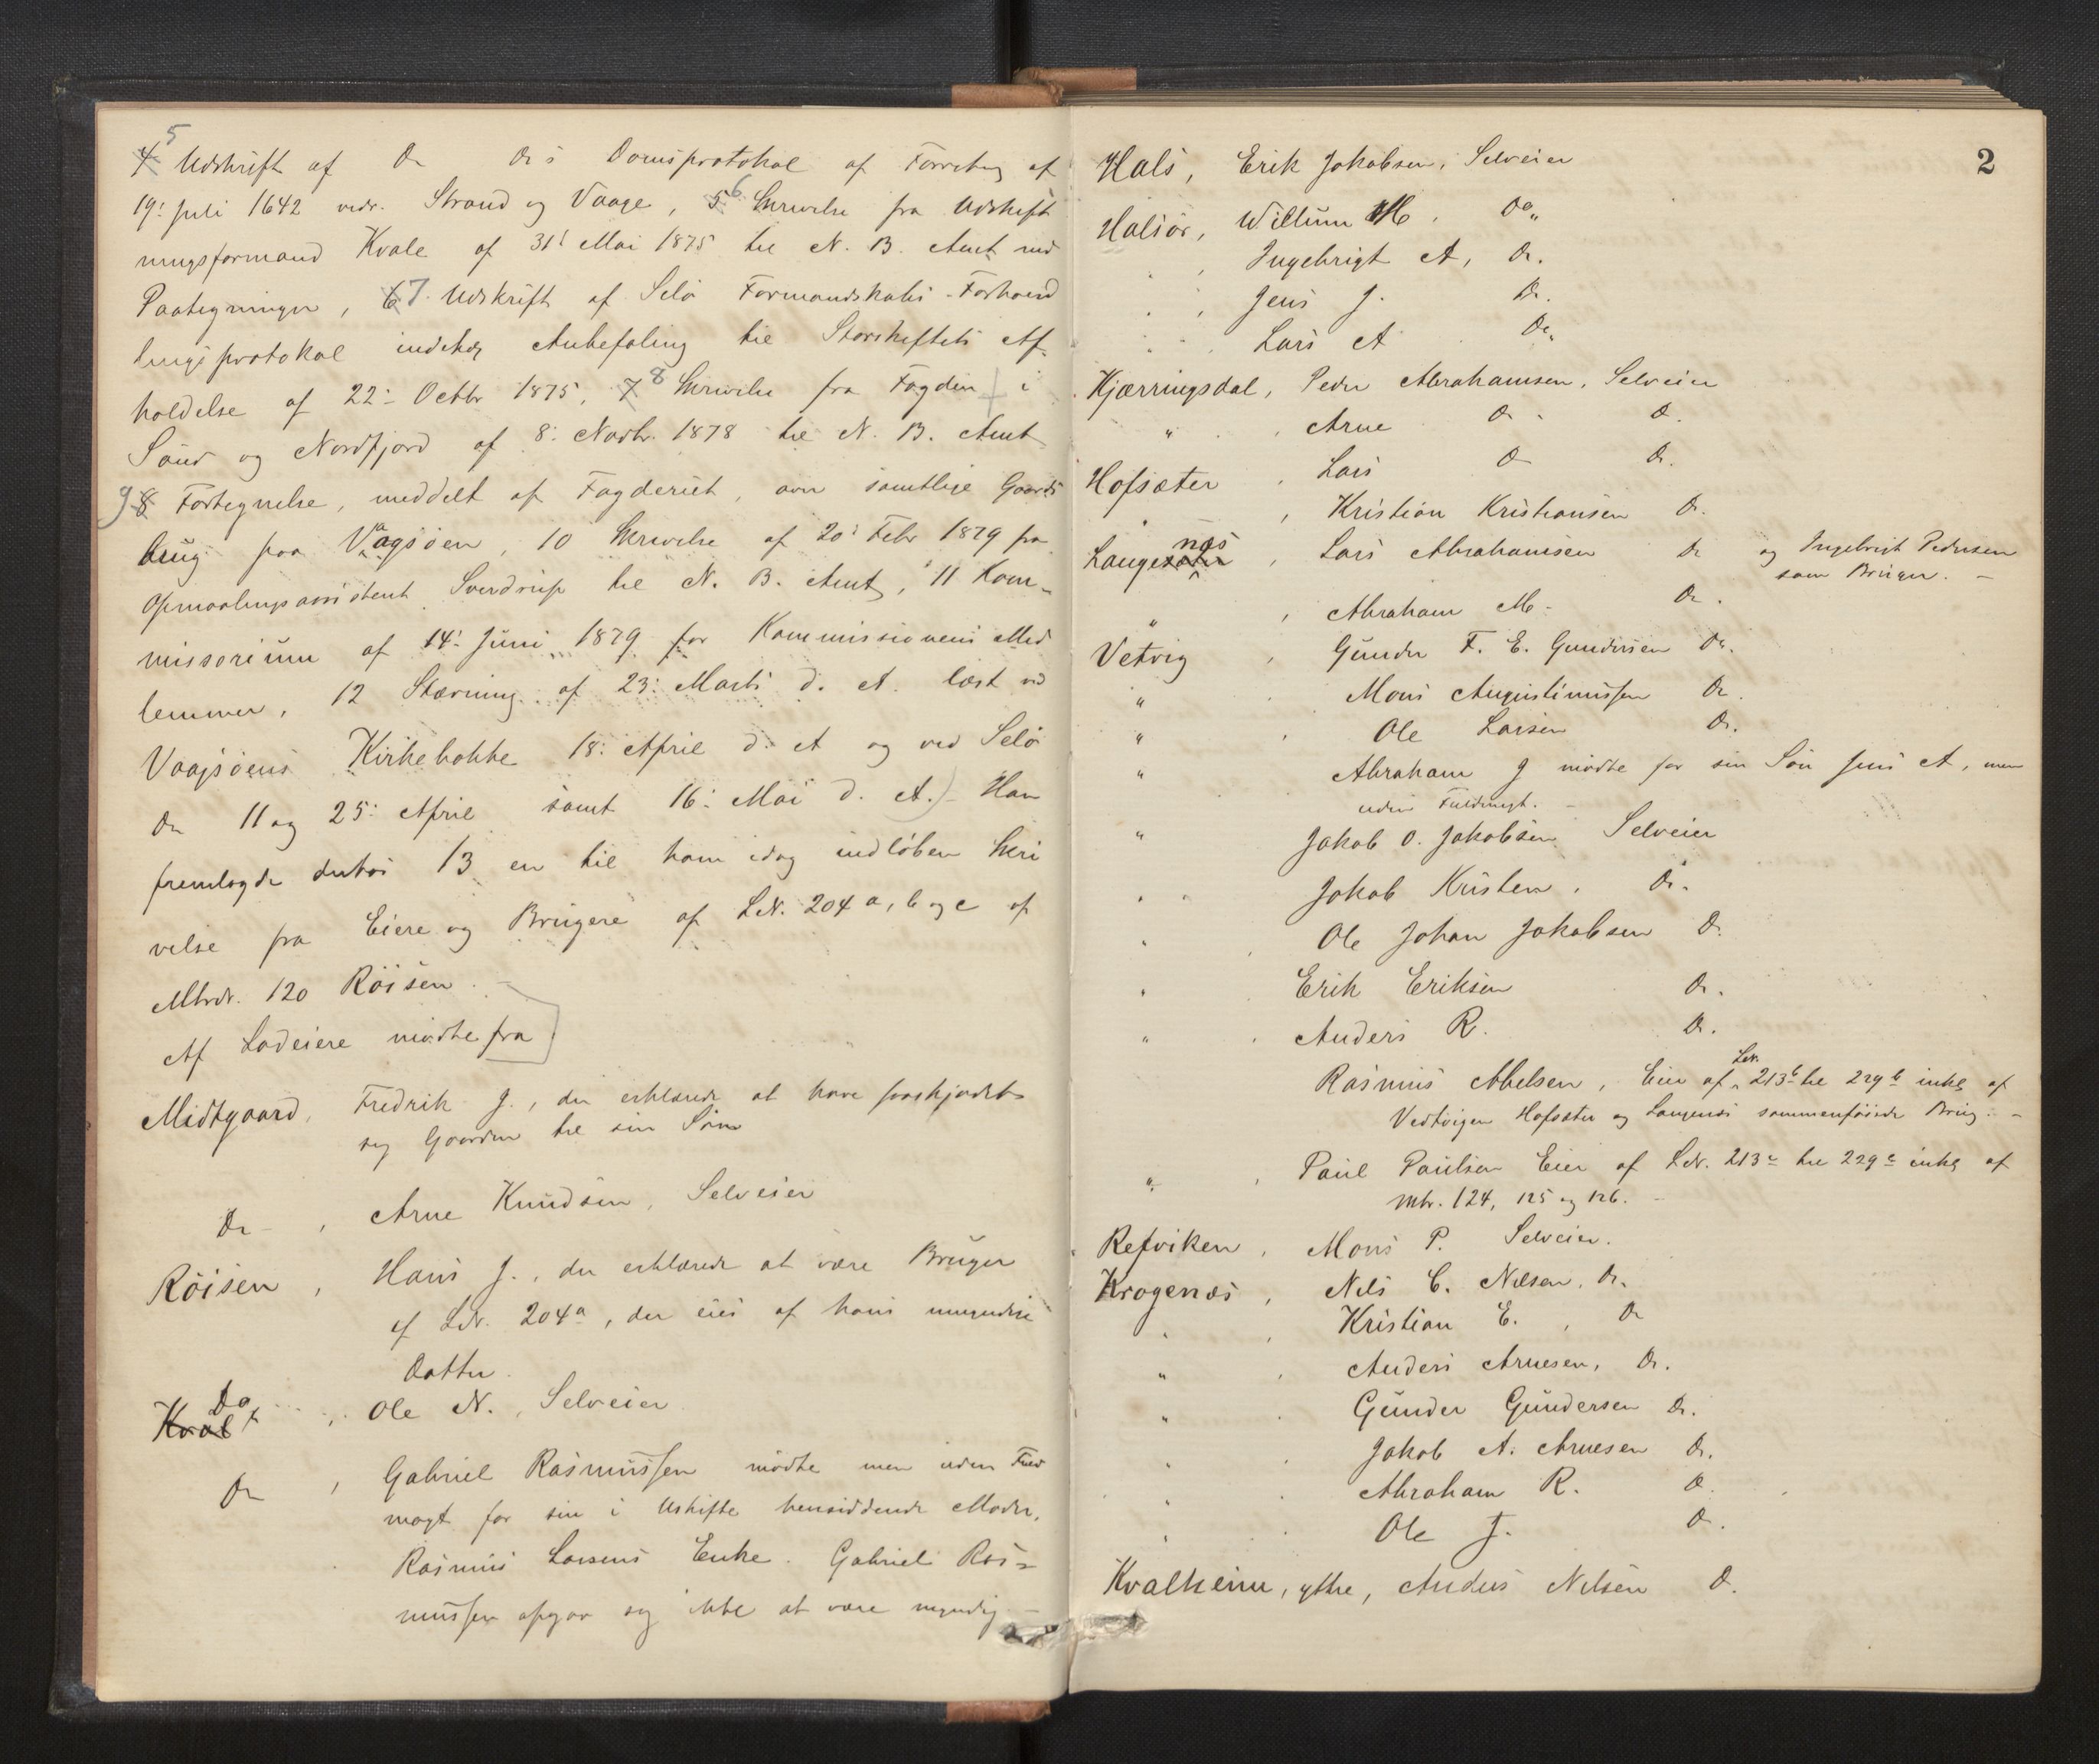 5
4 Udskrift af Do Do's Domsprotokol af Forretng af
19: Juli 1642 vedr. Strand og Vaage, 5 6 Skrivelse fra Udskift
ningsformand Kvale af 31: Mai 1875 til N. B. Amt med
Paategninger, 6 7. Udskrift af Selø Formandskabs-Forhand
lingsprotokol indehdg Anbefaling til Storskiftets Af-
holdelse af 22: Octbr 1875, 7 8 Skrivelse fra Fogden i
Sønd og Nordfjord af 8: Novbr. 1878 til N. B. Amt
9 8 Fortegnelse, meddelt af Fogderiet, over samtlige Gaards
brug paa Vaagsøen, 10 Skrivelse af 20: Febr 1879 fra
Opmaalingsassistent Sverdrup til N. B. Amt, 11 Kom-
missorium af 14: Juni 1879 for Kommissionens Med
lemmer, 12 Stævning af 23: Marts d. A. læst ved
Vaagsøens Kirkebakke 18: April d. A og ved Selø
Do 11 og 25: April samt 16: Mai d. A.) - Han
fremlagde derhos 13 en til ham idag indløben Skri
velse fra Eiere og Brugere af LN. 204 a, b og c af
Mtrdr. 120 Röisen. -
Af Lodeiere mødte fra
Midtgaard, Fredrik J., der erklærede at have fraskjødet
sig Gaarden til sin Søn
Do - , Arne Knudsen, Selveier
Röisen, Hans J., der erklærede at være Bruger
af LN. 204a, der eies af hans umyndige
Datter.
Kval Do , Ole N., Selveier
Do , Gabriel Rasmussen mødte men uden Fuld
magt for sin i Uskifte hensiddende Moder,
Rasmus Larsens Enke. Gabriel Ras=
mussen opgav sig ikke at være myndig. -
2
Hals, Erik Jakobsen, Selveier
Halsør, Willum M, Do "
" , Ingebrigt A, Do.
" , Jens J. Do.
" , Lars A Do "
Kjærringsdal, Peder Abrahamsen, Selveier
" , Arne Do - Do.
Hofsæter , Lars Do Do.
" , Kristian Kristiansen Do.
Langesæter næs , Lars Abrahamsen Do og Ingebrigt Pedersen
som Bruger. -
" , Abraham M - Do.
Vetvig , Gunder F. E. Gundersen Do.
" Mons Augustinussen Do.
" , Ole Larsen Do.
" Abraham J mødte for sin Søn Jens A, men
uden Fuldmagt. -
" Jakob O. Jakobsen Selveier
" Jakob Kristen, Do.
" , Ole Johan Jakobsen Do.
" Erik Eriksen Do.
" , Anders R. Do.
Rasmus Abelsen, Eier af LN. 213b til 229b inkl af
Vedtvigen Hofsæter og Langenæs sammenføiede Brug. -
" , Paul Paulsen Eier af LN. 213c til 229c inkl af
Mtr. 124, 125 og 126. -
Refviken, Mons P. Selveier.
Krogenæs, Nils C. Nilsen, Do.
" , Kristian E. , Do
" , Anders Arnesen, Do.
" Gunder Gundersen Do.
" Jakob A. Arnesen Do.
" Abraham R. Do.
" Ole J. Do.
Kvalheim, ytre, Anders Nilsen Do.